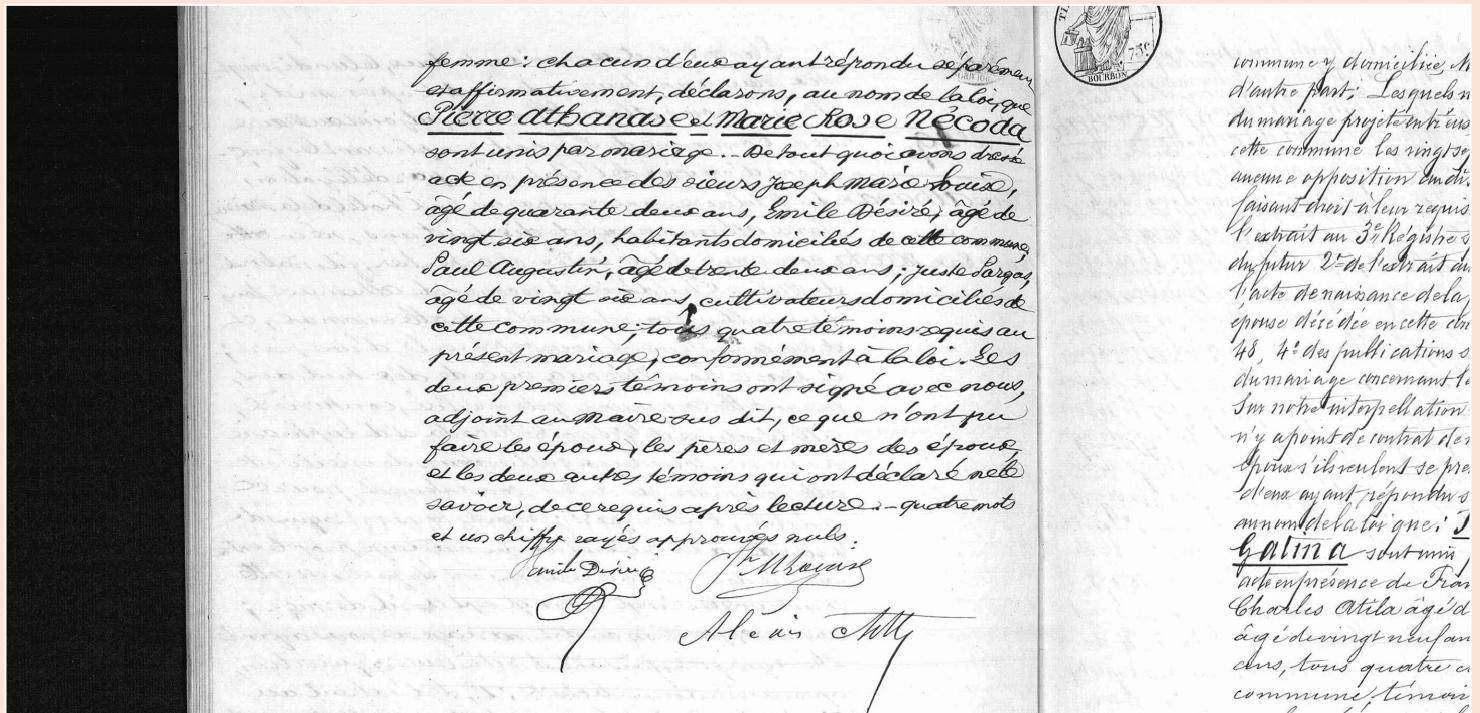 femme : chacun d'eux ayant répondu séparément
et affirmativement, déclarons, au nom de la loi, que
Pierre Athanase et Marie Rose Nécoda
sont unis par mariage. - De tout quoi avons dressé
acte en présence des sieurs Joseph Marie Louise,
âgé de quarante deux ans, Emile Désiré, âgé de
vingt six ans, habitants domiciliés de cette commune,
Paul Augustin, âgé de trente deux ans ; Juste
âgé de vingt six ans, cultivateurs domiciliés de
cette commune, tous quatre témoins requis au
présent mariage, conformément à la loi. Les
deux premiers témoins ont signé avec nous,
adjoint au Maire sus dit, ce que n'ont pu
faire les époux, les pères et mères des époux
et les deux autres témoins qui ont déclaré ne le
savoir, de ce requis après lecture. - quatre mots
et un chiffre rayés approuvés nuls.
Emile Désiré
Alexis
75c
BOURBON
commune y domiciliée,
d'autre part ; Lesquels n
du mariage projeté entre eux
cette commune les vingt sep
aucune opposition au di
faisant droit à leur requis
l'extrait au 3e Régistre s
du futur 2° de l'extrait au
l'acte de naissance de la
épouse décédée en cette com
48, 4° des publications s
du mariage concernant l
Sur notre interpellation
n'y a point de contrat de
époux s'ils veulent se pre
d'eux ayant répondu s
au nom de la loi que :
Galina sont unis
acte en présence de Fran
Charles Atila âgé d
âgé de vingt neuf an
ans, tous quatre c
commune, témoin